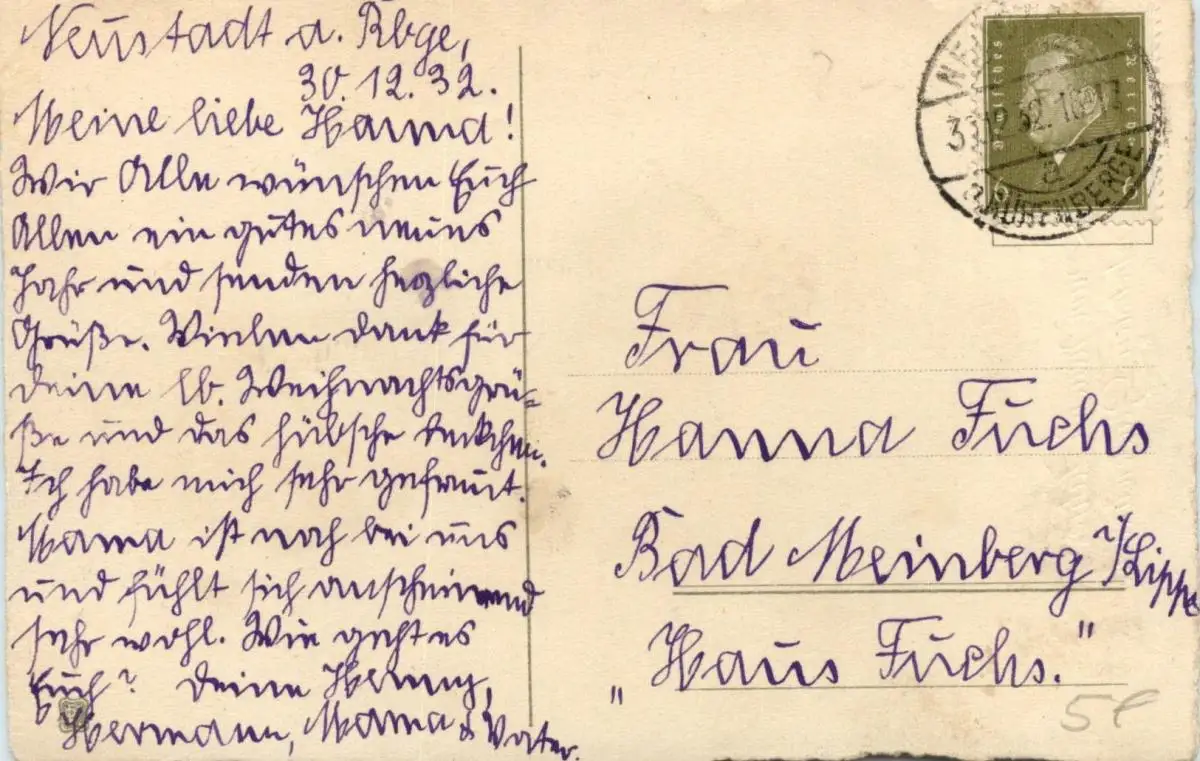 Neustadt a. Rbge,
30.12.32.
Meine liebe Hanna!
Wir Alle wünschen Euch
Allen ein gutes neues
Jahr und senden herzliche
Grüße. Vielen Dank für
deine lb. Weihnachtsgrü-
ße und das hübsche Deckchen.
Ich habe mich sehr gefreut.
Mama ist noch bei uns
und fühlt sich anscheinend
sehr wohl. Wie geht es
Euch? Deine
Hermann, Mama & Vater.
Deutsches Reich
30.12.32.
a. RÜBENBERGE
Frau
Hanna Fuchs
Bad Meinberg i/Lippe
„Haus Fuchs."